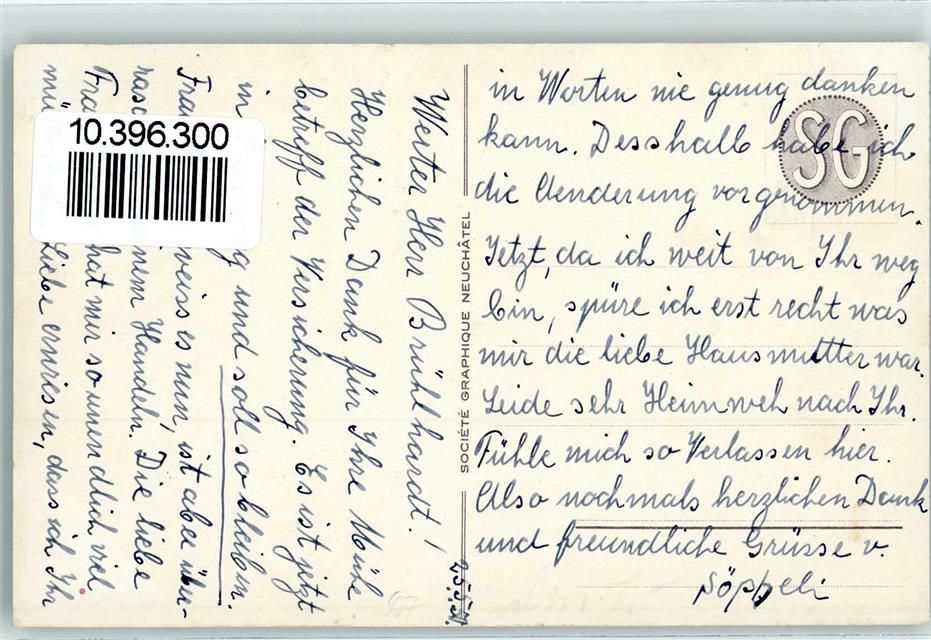 10.396.300
Werter Herr Brühlhardt!
Herzlichen Dank für Ihre Mühe
betreff der Versicherung. Es ist jetzt
in g und soll so bleiben.
Frau weiss es nun, ist aber über-
rasc inem Handeln. Die liebe
Frau hat mir so unendlich viel
Liebe erwiesen, dass ich Ihr
in Worten nie genug danken
kann. Desshalb habe ich
die Aenderung vorgenommen.
Jetzt, da ich weit von Ihr weg
bin, spüre ich erst recht was
mir die liebe Hausmutter war.
Leide sehr Heimweh nach Ihr.
Fühle mich so Verlassen hier.
Also nochmals herzlichen Dank
und freundliche Grüsse v.
Söppeli
SOCIÉTÉ GRAPHIQUE NEUCHÂTEL
SG